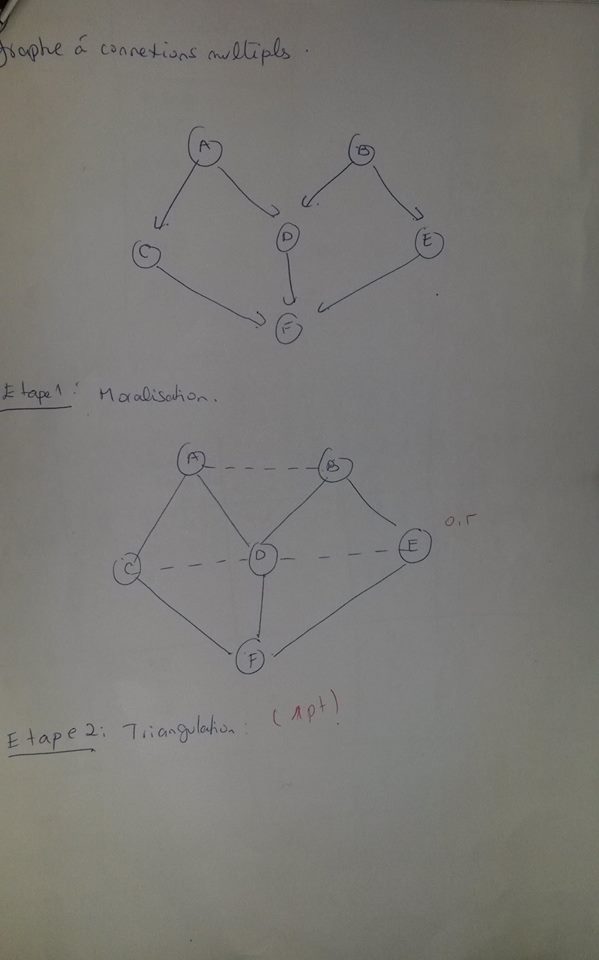 graphe á connexions multipls.
A B
C D E
F
Etape 1: Moralisation.
A B
0,5
C D E
F
Etape 2: Triangulation: (1pt)